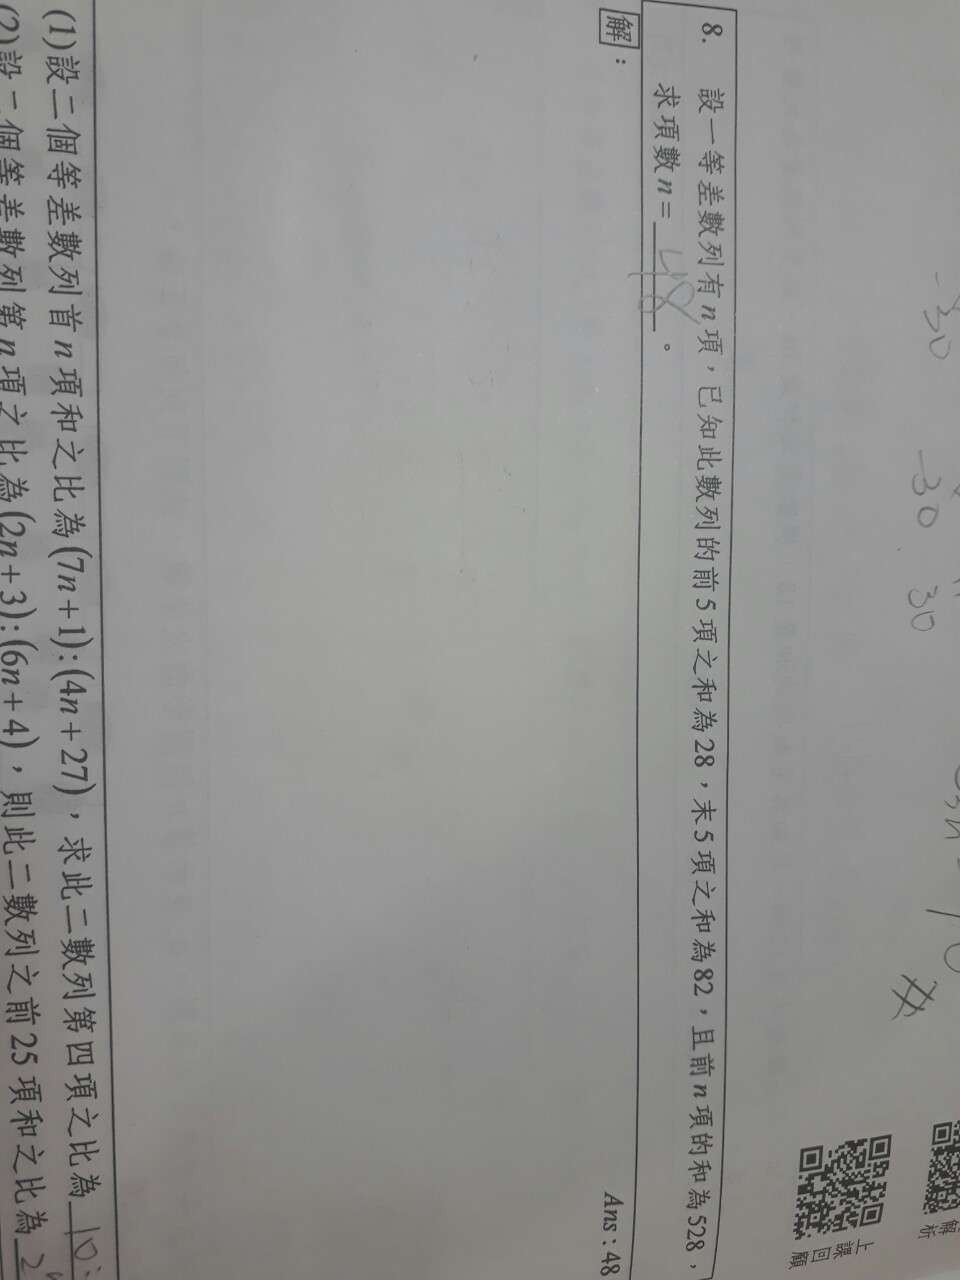 -30
-30 30
10 #
解析
上課回顧
8. 設一等差數列有n項，已知此數列的前5項之和為28，末5項之和為82，且前n項的和為528，
求項數n= 48 。
解：
Ans：48
(1)設二個等差數列首n項和之比為(7n+1):(4n+27)，求此二數列第四項之比為 10:
(2)設二個等差數列第n項之比為(2n+3):(6n+4)，則此二數列之前25項和之比為